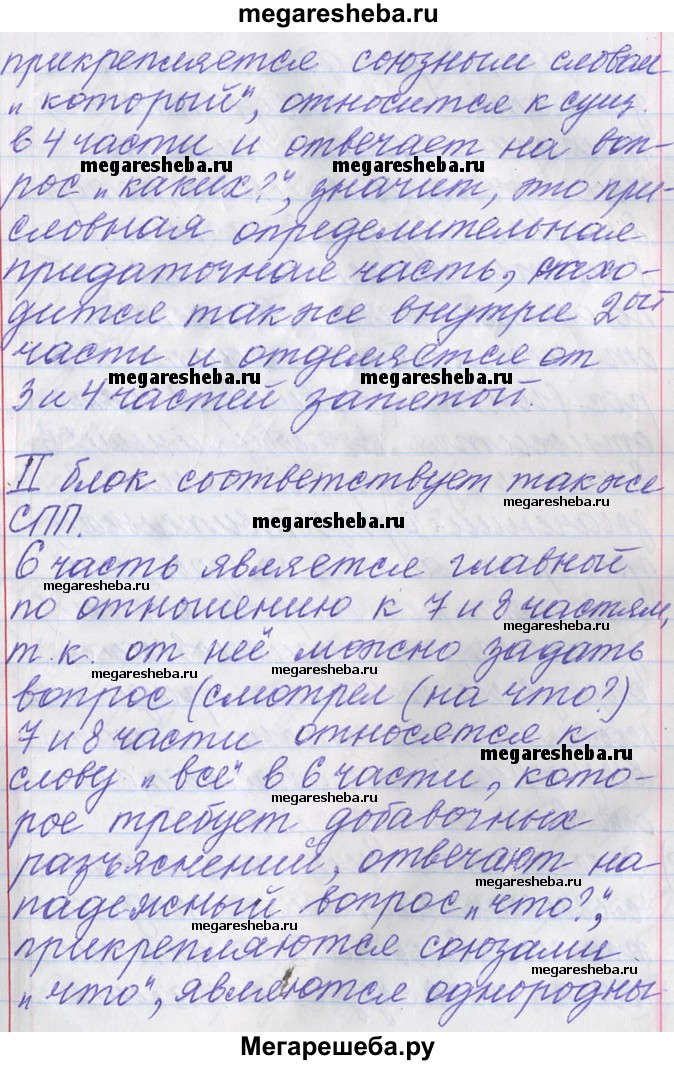 megaresheba.ru
прикрепляется союзным словом
„который“, относится к сущ.
в 4 части и отвечает на воп-
megaresheba.ru megaresheba.ru
рос „каких?“, значит, это при-
словная определительная
придаточная часть, нахо-
megaresheba.ru
дится также внутри 2ой
части и отделяется от
megaresheba.ru megaresheba.ru
3 и 4 частей запятой.
II блок соответствует также
megaresheba.ru
СПП.
megaresheba.ru
6 часть является главный
megaresheba.ru
по отношению к 7 и 8 частям,
megaresheba.ru
т.к. от неё можно задать
megaresheba.ru megaresheba.ru
вопрос (смотрел (на что?)
7 и 8 части относятся к
megaresheba.ru
слову „всё“ в 6 части, кото-
megaresheba.ru
рое требует добавочных
разъяснений, отвечают на
megaresheba.ru
падежный вопрос „что?“,
megaresheba.ru
прикрепляются союзами
megaresheba.ru
„что“, являются однородны-
Мегарешеба.ру